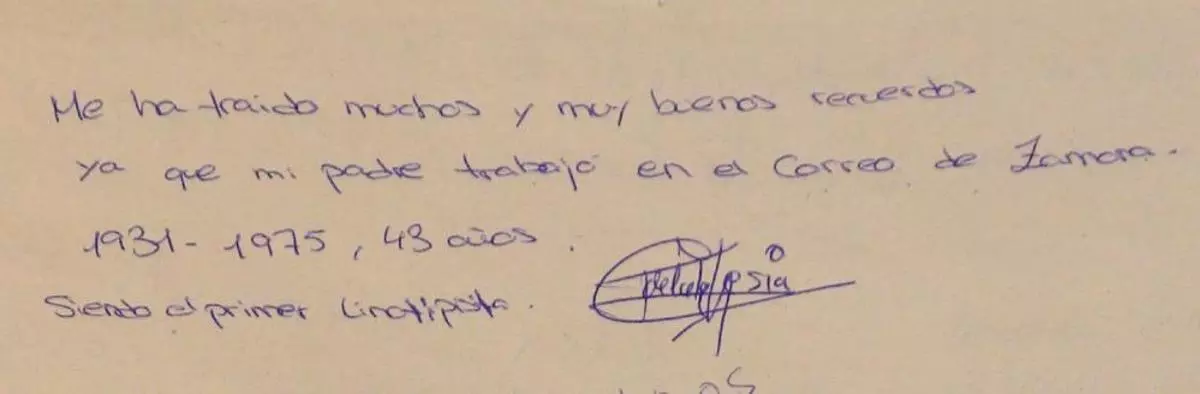 Me ha traido muchos y muy buenos recuerdos
ya que mi padre trabajó en el Correo de Zamora.
1931 - 1975, 43 años.
Siendo el primer Linotipista.